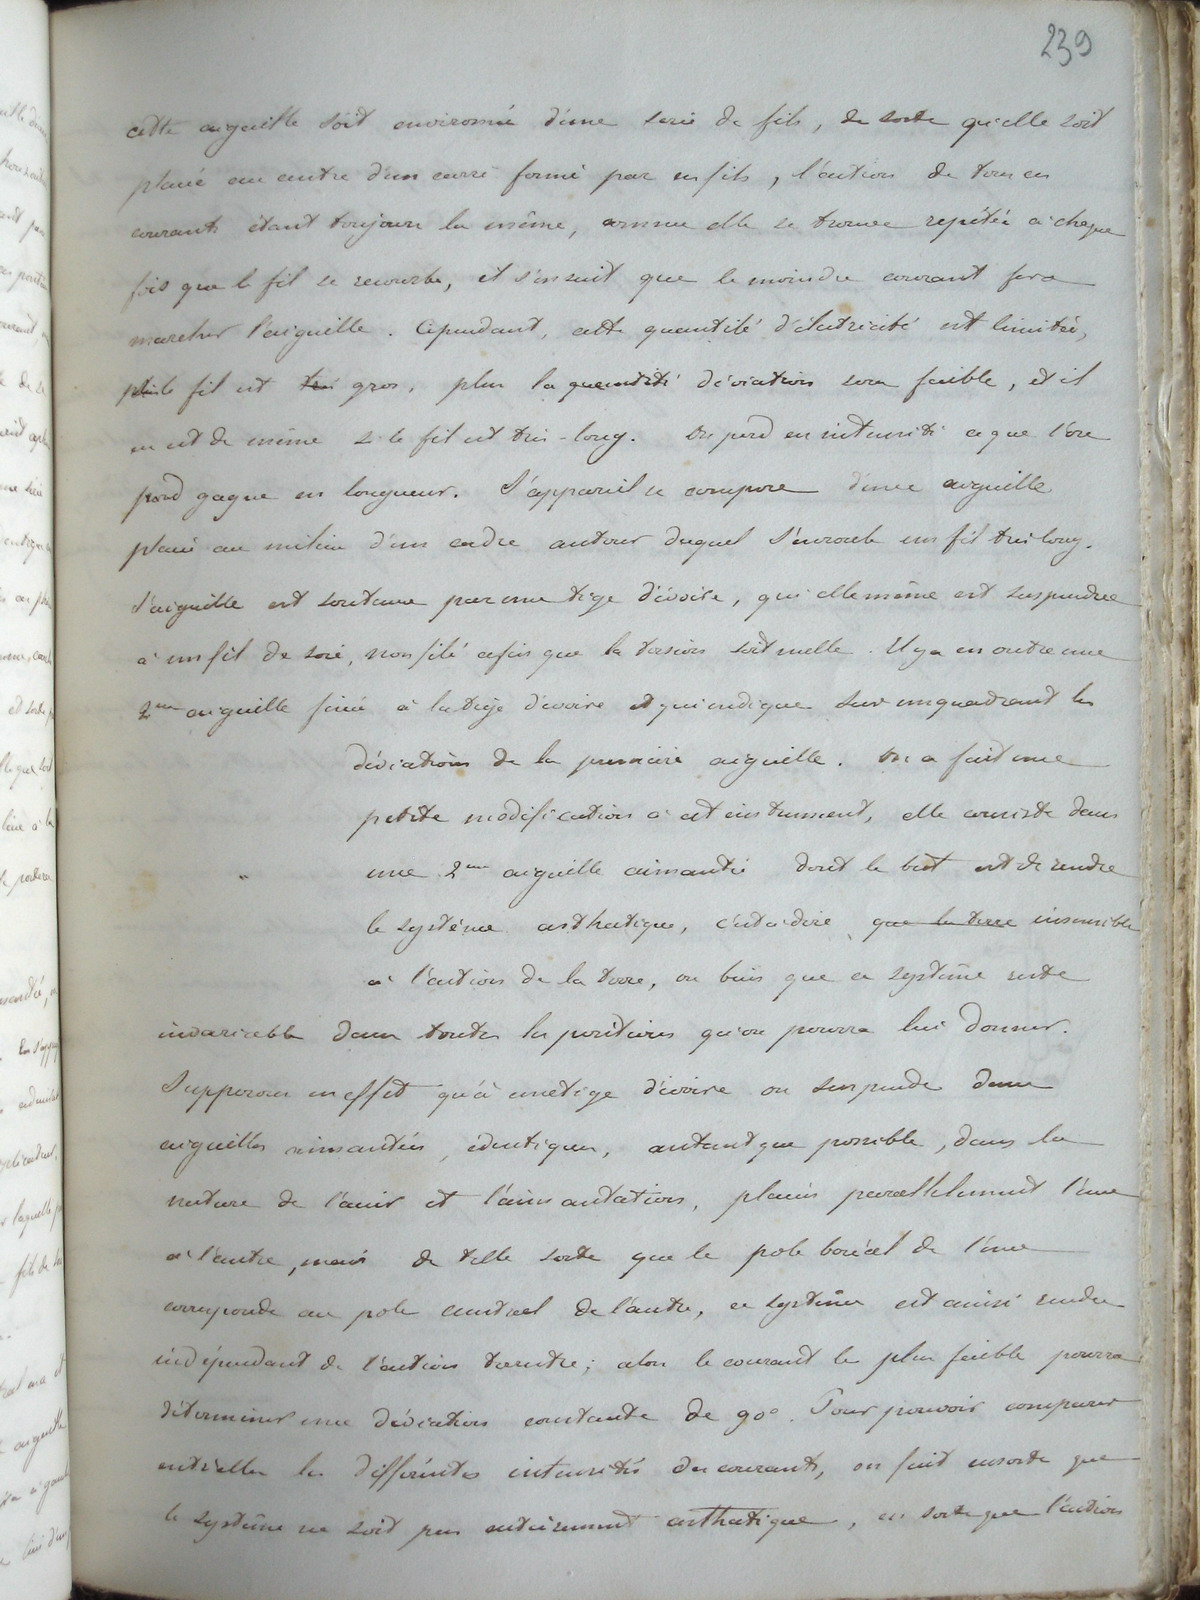 239
cette aiguille soit environné d'une serie de fils, de sorte qu'elle soit
placé au centre d'un carré formé par ces fils, l'action de tous ces
courants étant toujours la même, comme elle se trouve repétée à chaque
fois que le fil se recourbe, il s'ensuit que le moindre courant fera
marcher l'aiguille. Cependant, cette quantité d'électricité est limitée,
plus le fil est très gros, plus la quantité déviation sera faible, et il
en est de même si le fil est très-long. On perd en intensité ce que l'on
perd gagne en longueur. L'appareil se compose d'une aiguille
placé au milieu d'un cadre autour duquel s'enroule un fil très long.
L'aiguille est soutenue par une tige d'ivoire, qui elle même est suspendue
à un fil de soie, non filé afin que la torsion soit nulle. Il y a en outre une
2me aiguille fixée à la tige d'ivoire et qui indique sur un quadrant les
déviations de la première aiguille. On a fait une
petite modification à cet instrument, elle consiste dans
une 2me aiguille aimantée dont le but est de rendre
le système asthatique, c'est à dire que la terre insensible
à l'action de la terre, ou bien que ce système reste
invariable dans toutes les positions qu'on pourra lui donner.
Supposons en effet qu'à une tige d'ivoire on suspende deux
aiguilles aimantées, identiques, autant que possible, dans la
nature de l'acier et l'aimantation, placées parallèlement l'une
à l'autre, mais de telle sorte que le pole boréal de l'une
corresponde au pole austral de l'autre, ce système est ainsi rendu
indépendant de l'action terrestre; alors le courant le plus faible pourra
déterminer une déviation constante de 90°. Pour pouvoir comparer
entr'elles les différentes intensités des courants, on fait ensorte que
le système ne soit pas entièrement asthatique, en sorte que l'action